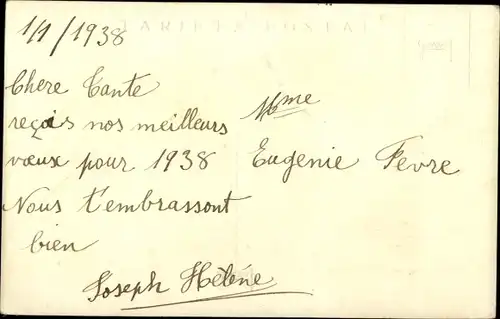 TARJETA POSTAL
1/1/1938
Chere Tante
reçois nos meilleurs
vœux pour 1938
Nous t'embrassont
bien
Joseph Hélène
Mme
Eugenie Fevre